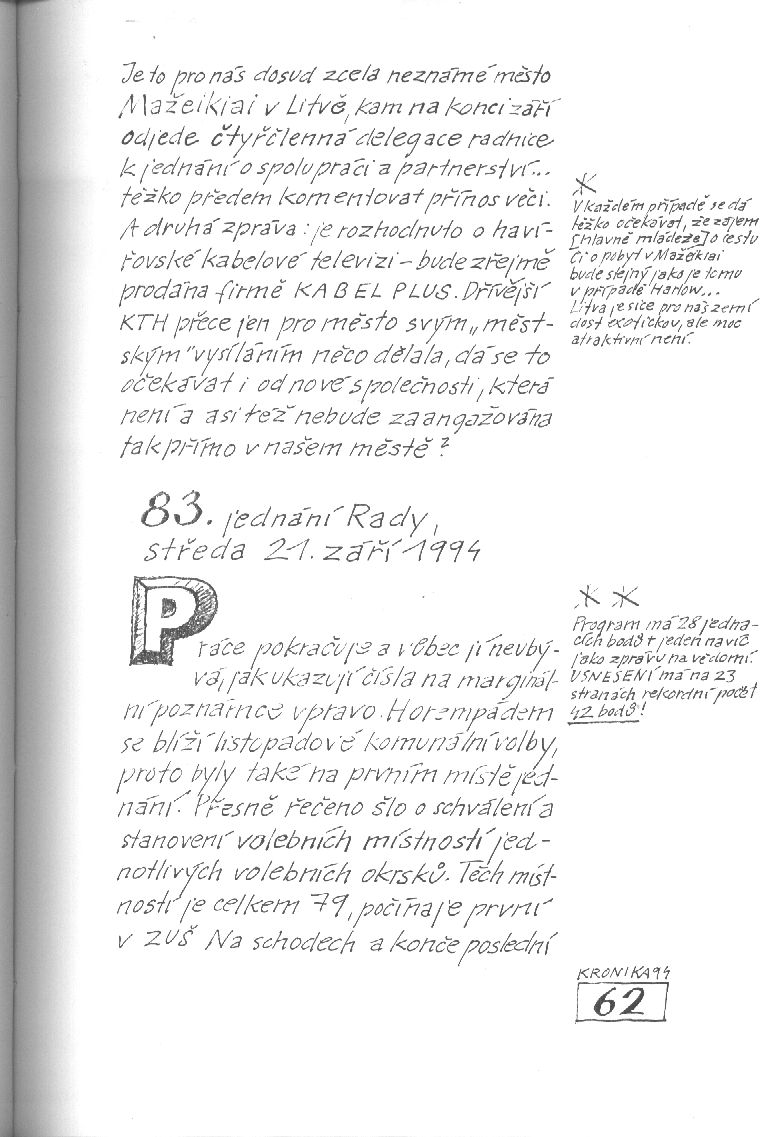 Je to pro nás dosud zcela neznámé město
Mažeikiai v Litvě, kam na konci září
odjede čtyřčlenná delegace radnice
k jednání o spolupráci a partnerství...
těžko předem komentovat přínos věci.
A druhá zpráva : je rozhodnuto o haví-
řovské kabelové televizi – bude zřejmě
prodána firmě KABEL PLUS. Dřívější
KTH přece jen pro město svým „měst-
ským" vysíláním něco dělala, dá se to
očekávat i od nové společnosti, která
není a asi též nebude zaangažována
tak přímo v našem městě ?
*
V každém případě se dá
těžko očekávat, že zájem
[hlavně mládeže] o cestu
či o pobyt v Mažeikiai
bude stejný jako je tomu
v případě Harlow...
Litva je sice pro nás zemí
dost exotickou, ale moc
atraktivní není.
83. jednání Rady,
středa 21. září 1994
Práce pokračuje a vůbec jí neubý-
vá, jak ukazují čísla na marginál-
ní poznámce vpravo. Horempádem
se blíží listopadové komunální volby,
proto byly také na prvním místě jed-
nání. Přesně řečeno šlo o schválení a
stanovení volebních místností jed-
notlivých volebních okrsků. Těch míst-
ností je celkem 79, počínaje první
v ZUŠ Na schodech a konče poslední
* *
Program má 28 jedna-
cích bodů + jeden navíc
jako zprávu na vědomí.
USNESENÍ má na 23
stranách rekordní počet
42 bodů !
KRONIKA 94
62